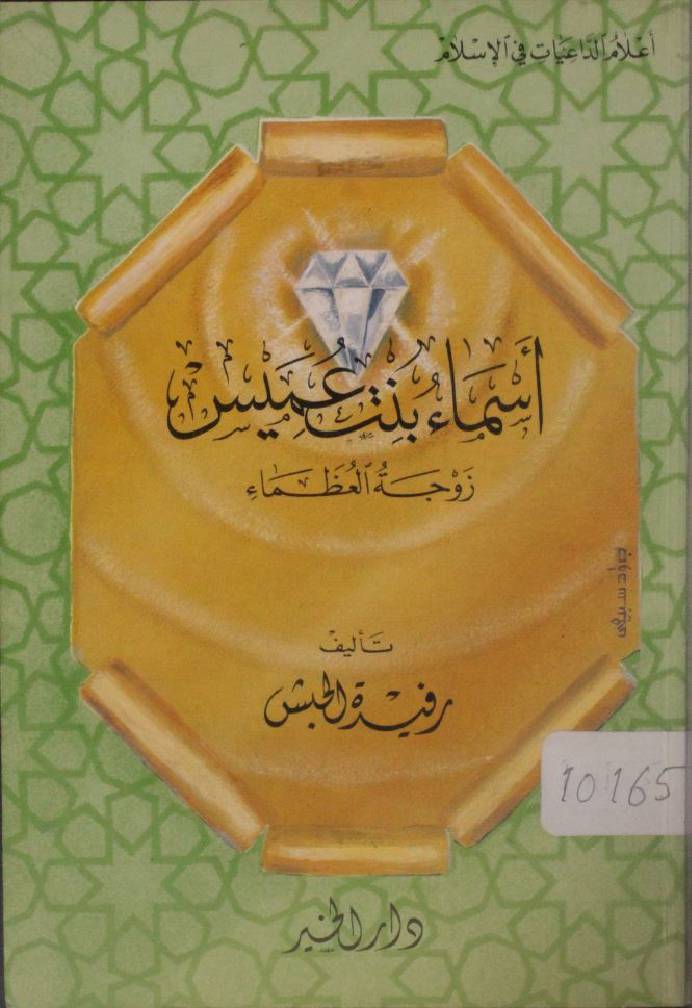 أَعْلَامُ الدَّاعِيَاتِ فِي الْإِسْلَامِ
أَسْمَاءُ بِنْتُ عُمَيْسٍ
زَوْجَةُ الْعُظَمَاءِ
تَأْلِيفْ
رفيدة الحبش
10165
دار الخير